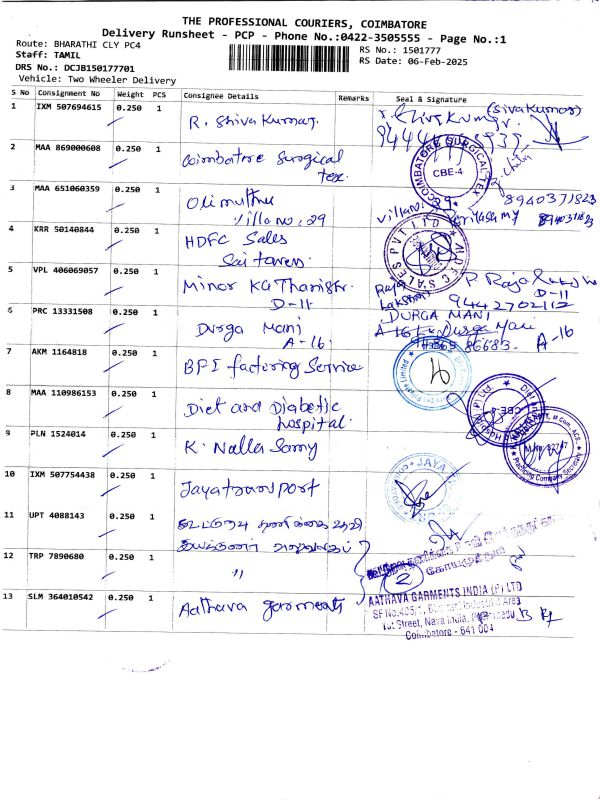 THE PROFESSIONAL COURIERS, COIMBATORE
Delivery Runsheet - PCP - Phone No.:0422-3505555 - Page No.:1
Route: BHARATHI CLY PC4
Staff: TAMIL
DRS No.: DCJB150177701
Vehicle: Two Wheeler Delivery
RS No.: 1501777
RS Date: 06-Feb-2025
S No Consignment No Weight PCS Consignee Details Remarks Seal & Signature
1 IXM 507694615 0.250 1 R. Shiva Kumar. (Siva Kumar)
2 MAA 869000608 0.250 1 Coimbatore Surgical
tex. COIMBATORE SURGICAL TEX CBE-4
3 MAA 651060359 0.250 1 Olimuthu
villa no. 29 villa no. 29 8940371823
4 KRR 50140844 0.250 1 HDFC Sales
Sai towers.
5 VPL 406069057 0.250 1 Minor
D-11 P. Raja
D-11
9442702112
6 PRC 13331508 0.250 1 Durga Mani
A-16. DURGA MANI
A-16 Durga Mani
86683. A-16
7 AKM 1164818 0.250 1 BFI factoring Service
8 MAA 110986153 0.250 1 Diet and Diabetic
hospital. CBE-4
9 PLN 1524014 0.250 1 K. Nalla Samy Practising Company Secretary
10 IXM 507754438 0.250 1 Jaya transport JAYA
11 UPT 4088143 0.250 1
12 TRP 7890680 0.250 1 " 2
13 SLM 364010542 0.250 1 Aathava garments AATHAVA GARMENTS INDIA (P) LTD
Industrial Area
Street, Nava India,
Coimbatore - 641 004